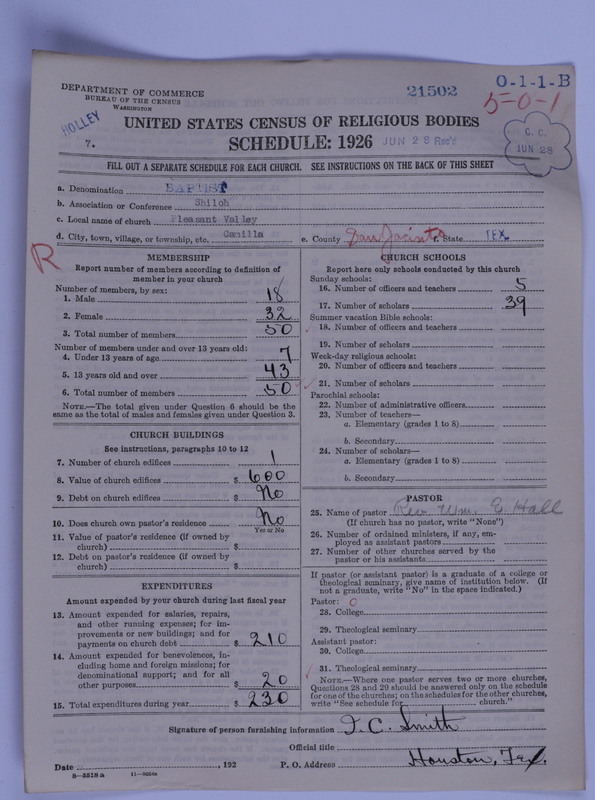 DEPARTMENT OF COMMERCE
BUREAU OF THE CENSUS
WASHINGTON
21502
O-1-1-B
5-0-1
HOLLEY
7.
UNITED STATES CENSUS OF RELIGIOUS BODIES
SCHEDULE: 1926
JUN 28 Rec'd
C. C.
JUN 28
FILL OUT A SEPARATE SCHEDULE FOR EACH CHURCH. SEE INSTRUCTIONS ON THE BACK OF THIS SHEET
a. Denomination BAPTIST
b. Association or Conference Shiloh
c. Local name of church Pleasant Valley
d. City, town, village, or township, etc. Camilla e. County San Jacinto f. State TEX
R
MEMBERSHIP
Report number of members according to definition of
member in your church
Number of members, by sex:
1. Male 18
2. Female 32
3. Total number of members 50
Number of members under and over 13 years old:
4. Under 13 years of age 7
5. 13 years old and over 43
6. Total number of members 50
NOTE.—The total given under Question 6 should be the
same as the total of males and females given under Question 3.
CHURCH BUILDINGS
See instructions, paragraphs 10 to 12
7. Number of church edifices 1
8. Value of church edifices $ 600
9. Debt on church edifices $ No
10. Does church own pastor's residence No
Yes or No
11. Value of pastor's residence (if owned by
church) $
12. Debt on pastor's residence (if owned by
church) $
EXPENDITURES
Amount expended by your church during last fiscal year
13. Amount expended for salaries, repairs,
and other running expenses; for im-
provements or new buildings; and for
payments on church debt $ 210
14. Amount expended for benevolences, in-
cluding home and foreign missions; for
denominational support; and for all
other purposes $ 20
15. Total expenditures during year $ 230
CHURCH SCHOOLS
Report here only schools conducted by this church
Sunday schools:
16. Number of officers and teachers 5
17. Number of scholars 39
Summer vacation Bible schools:
18. Number of officers and teachers
19. Number of scholars
Week-day religious schools:
20. Number of officers and teachers
21. Number of scholars
Parochial schools:
22. Number of administrative officers
23. Number of teachers—
a. Elementary (grades 1 to 8)
b. Secondary
24. Number of scholars—
a. Elementary (grades 1 to 8)
b. Secondary
PASTOR
25. Name of pastor Rev. Wm. E. Hall
(If church has no pastor, write "None")
26. Number of ordained ministers, if any, em-
ployed as assistant pastors
27. Number of other churches served by the
pastor or his assistants
If pastor (or assistant pastor) is a graduate of a college or
theological seminary, give name of institution below. (If
not a graduate, write "No" in the space indicated.)
Pastor: 0
28. College
29. Theological seminary
Assistant pastor:
30. College
31. Theological seminary
NOTE.—Where one pastor serves two or more churches,
Questions 28 and 29 should be answered only on the schedule
for one of the churches; on the schedules for the other churches,
write "See schedule for church."
Signature of person furnishing information J. C. Smith
Official title
Date , 192 P. O. Address Houston, Tex.
8-5518 a 11-9554a